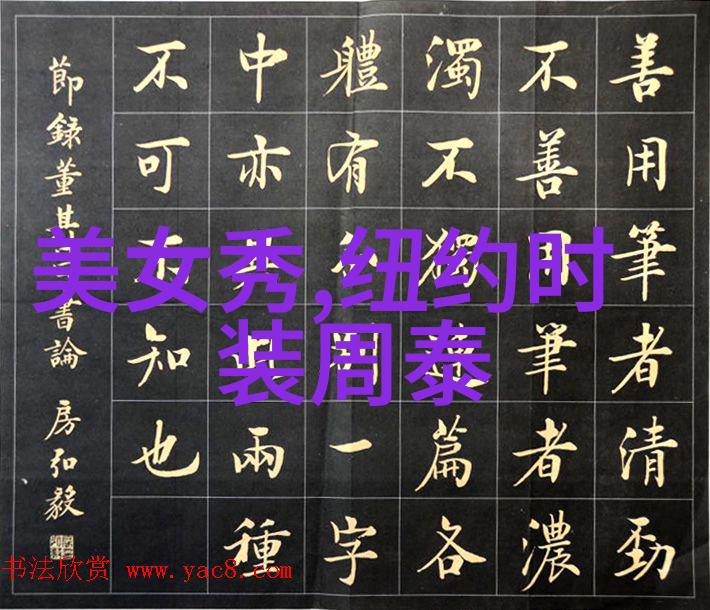 善用筆者清勁
不善用筆者濃
濁不獨篇各
體有一字
中亦具此兩種
不可不知也
節録董其書論 房弘毅
美女秀,纽约时
装周泰
书法欣赏 www.yac8.com